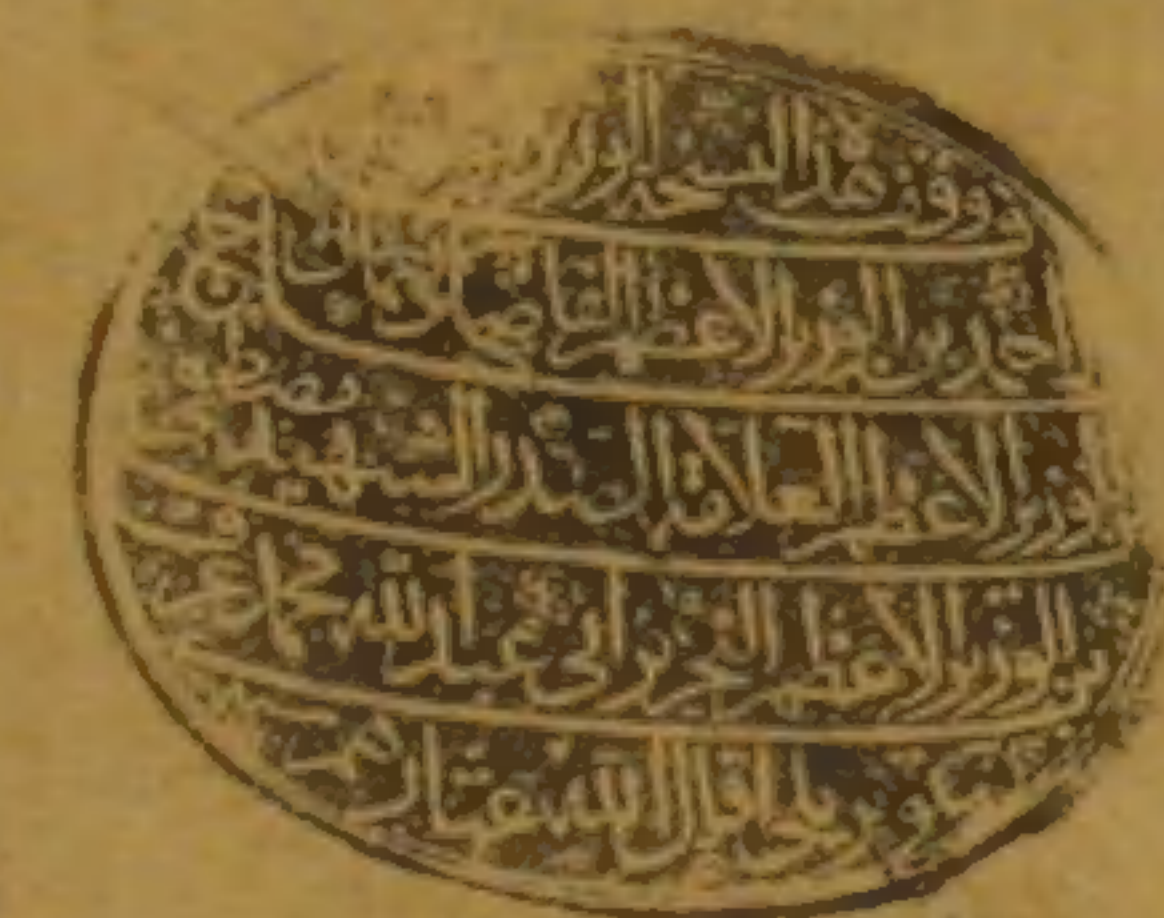 وقف هذا النسخة الوزير
احمد بن الوزير الاعظم الفاضل نعمان ابن
الوزير الاعظم العلامة الصدر الشهيد مصطفى
بن الوزير الاعظم النحرير ابى عبد الله محمد عرف
اقال الله عثارهم